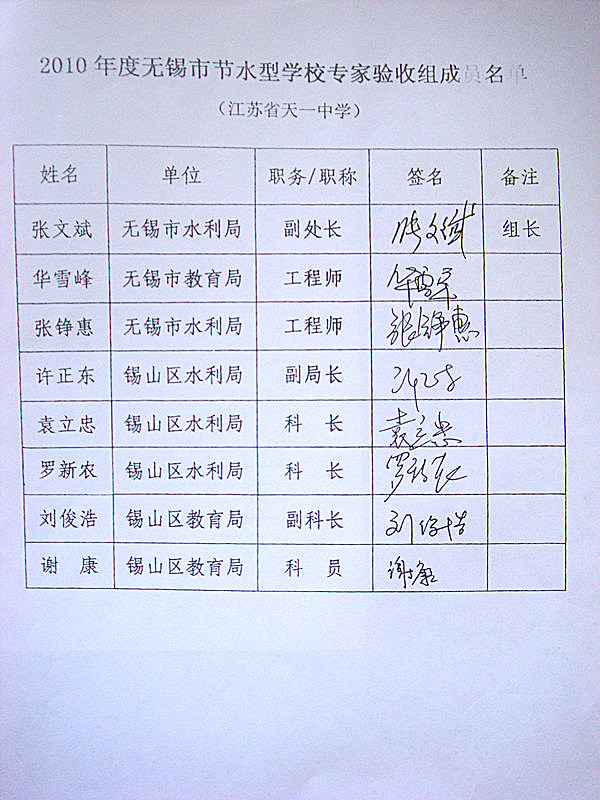 2010 年度无锡市节水型学校专家验收组成员名单
（江苏省天一中学）
姓名 单位 职务/职称 签名 备注
张文斌 无锡市水利局 副处长 张文斌 组长
华雪峰 无锡市教育局 工程师
张铮惠 无锡市水利局 工程师 张铮惠
许正东 锡山区水利局 副局长
袁立忠 锡山区水利局 科 长 袁立忠
罗新农 锡山区水利局 科 长 罗新农
刘俊浩 锡山区教育局 副科长 刘俊浩
谢 康 锡山区教育局 科 员 谢康